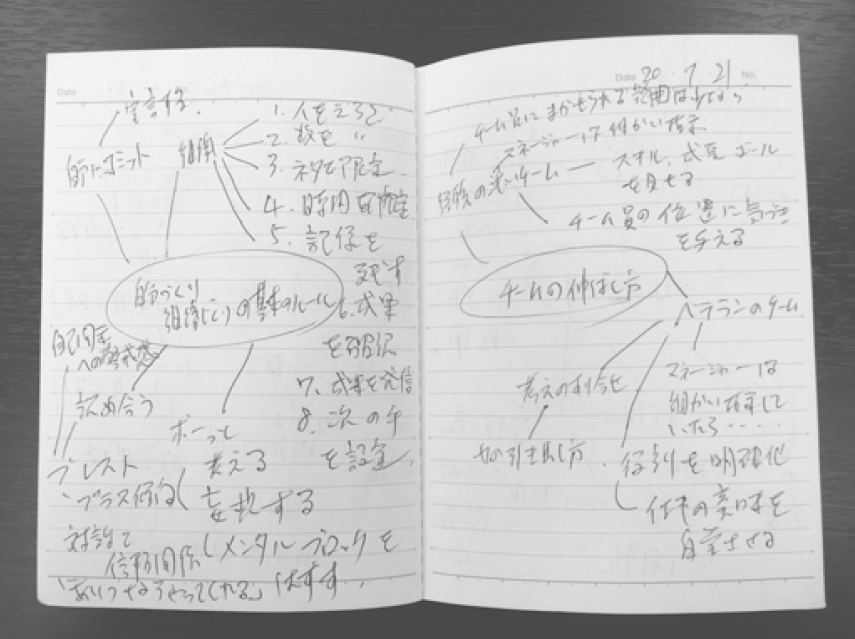 Date
宣言する.
自分にコミット
組織
1. 人をえらぶ
2. 数を 〃
3. ネタを限定
4. 時間を限定
5. 記録を
残す
自分づくり
組織づくりの基本のルール
6. 成果
を確認
自己肯定
への
認め合う
7. 成果を発信
8. 次の手
を設定
ボーっと
考える
ブレスト
・プラス傾向
妄想する
対話で
信頼関係
メンタルブロックを
「あいつならやってくれる」
はずす.
Date 20・7・21 No.
チーム員にまかせられる範囲は少ない
マネージャーは細かい指示
経験の浅いチーム
スモール. ゴール
を見せる
チーム員の位置に気づき
を与える
チームの伸ばし方
ベテランのチーム
マネージャーは
細かい指示して
いたら・・・・・
考えのすり合せ
力の引き出し方.
役割を明確化
仕事の意味を
自覚させる